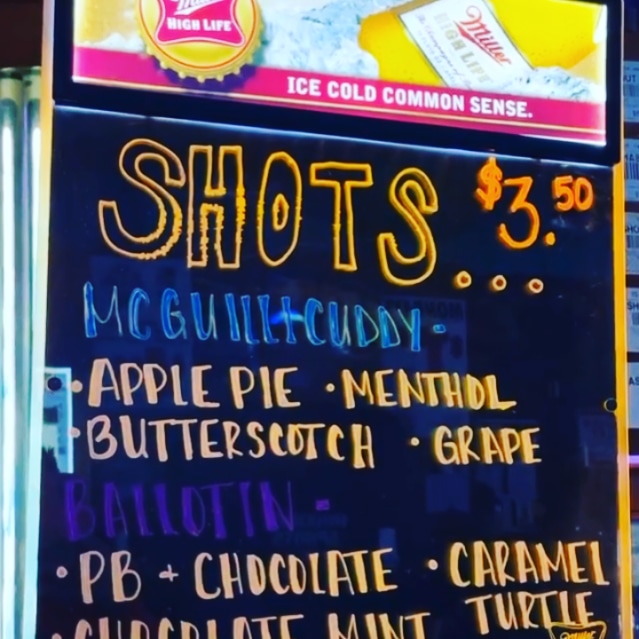 Miller
HIGH LIFE
Miller
HIGH LIFE
ICE COLD COMMON SENSE.
SHOTS... $3.50
MCGUILLICUDDY-
• APPLE PIE • MENTHOL
• BUTTERSCOTCH • GRAPE
BALLOTIN -
• PB + CHOCOLATE • CARAMEL
TURTLE
• CHOCOLATE MINT